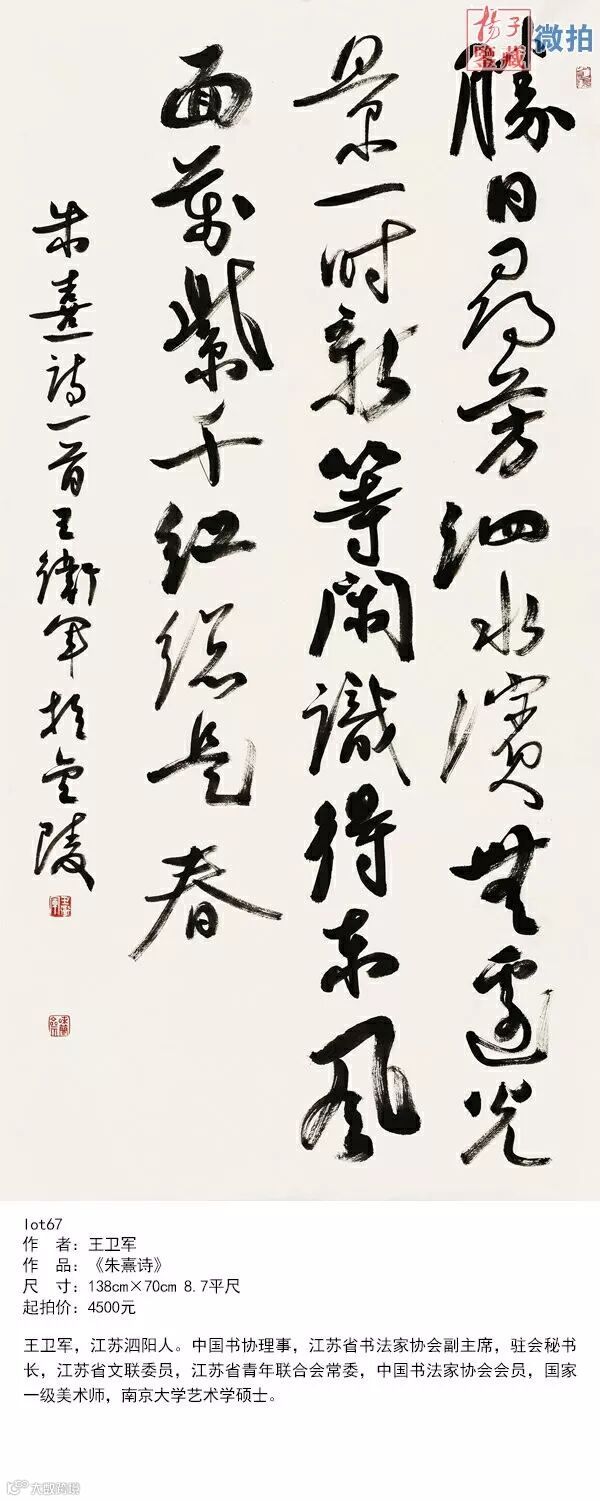 楊子
鑒藏
微拍
勝日尋芳泗水濱無邊光
景一时新等閑識得东風
面萬紫千红總是春
朱熹诗一首王衛军於金陵
lot67
作 者：王卫军
作 品：《朱熹诗》
尺 寸：138cm×70cm 8.7平尺
起拍价：4500元
王卫军，江苏泗阳人。中国书协理事，江苏省书法家协会副主席，驻会秘书
长，江苏省文联委员，江苏省青年联合会常委，中国书法家协会会员，国家
一级美术师，南京大学艺术学硕士。
大歐跨境